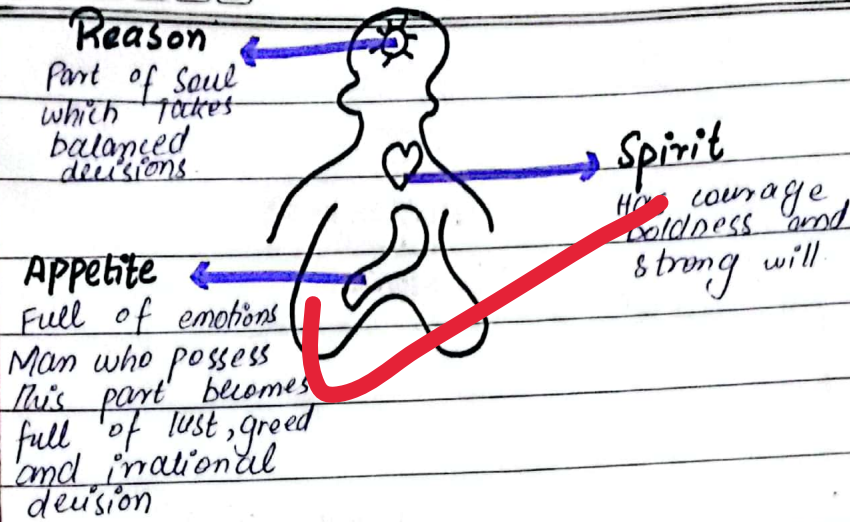 Reason
Part of Soul
which takes
balanced
decisions
Spirit
Has courage
boldness and
strong will
Appetite
Full of emotions
Man who possess
this part becomes
full of lust, greed
and irrational
decision